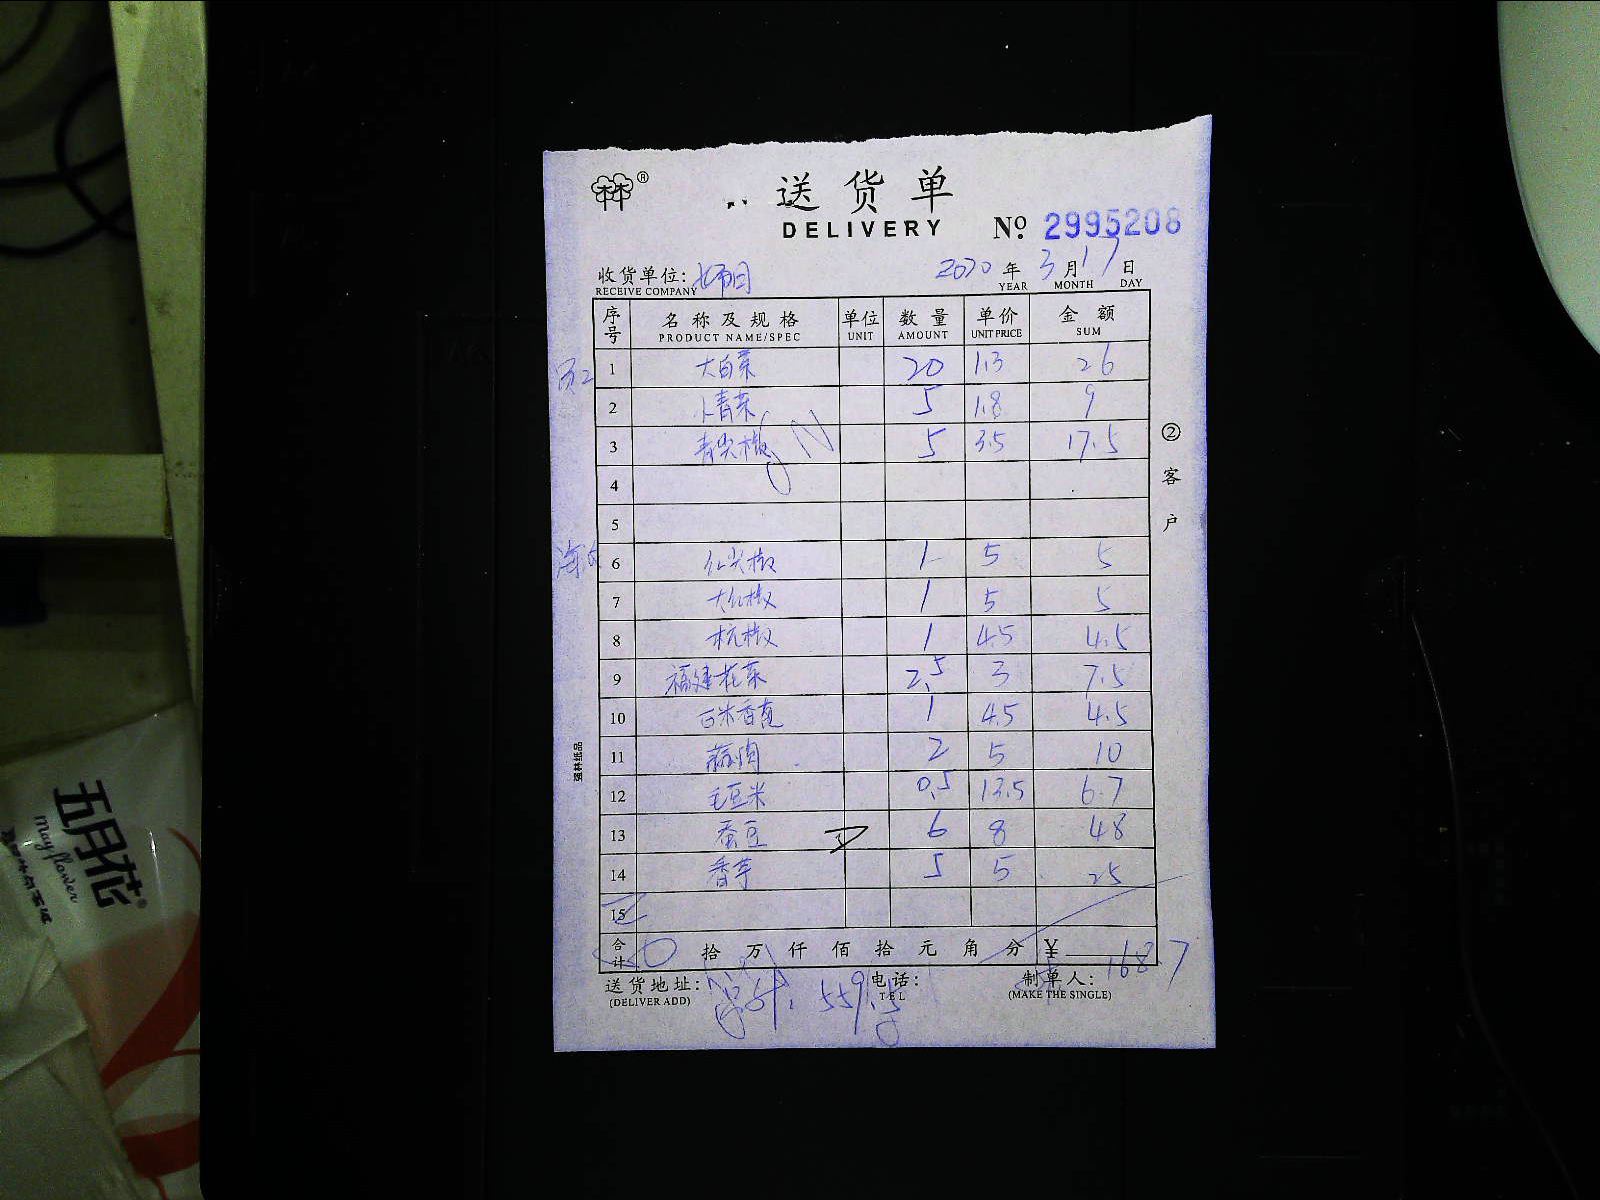 林林® 送货单
DELIVERY № 2995208
收货单位: 2020 年 3 月 17 日
RECEIVE COMPANY YEAR MONTH DAY
序号 名称及规格 单位 数量 单价 金额
PRODUCT NAME/SPEC UNIT AMOUNT UNIT PRICE SUM
1 大白菜 20 1.3 26
2 小青菜 5 1.8 9
3 青尖椒 5 3.5 17.5
4
5
6 红尖椒 1 5 5
7 大红椒 1 5 5
8 杭椒 1 4.5 4.5
9 福建花菜 2.5 3 7.5
10 白米香菇 1 4.5 4.5
11 2 5 10
12 毛豆米 0.5 13.5 6.7
13 蚕豆 6 8 48
14 香芋 5 5 25
15
合计 拾 万 仟 佰 拾 元 角 分 ¥ 168.7
送货地址: 电话: 制单人:
(DELIVER ADD) TEL (MAKE THE SINGLE)
559.5
②客户
强林纸品
五月花®
Mayflower